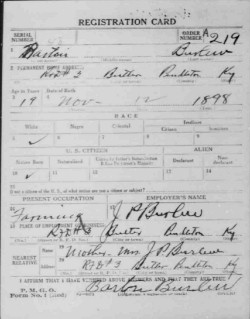 REGISTRATION CARD
SERIAL NUMBER ORDER NUMBER A 219
Barton Burlew
PERMANENT HOME ADDRESS
R.D. # 3 Butler Pendleton Ky
Age in Years Date of Birth
19 Nov - 12 1898
RACE
White Negro Oriental Indian
Citizen Noncitizen
U. S. CITIZEN ALIEN
Native Born Naturalized Declarant Non-declarant
If not a citizen of the U. S., of what nation are you a citizen or subject?
PRESENT OCCUPATION EMPLOYER'S NAME
Farming J P Burlew
PLACE OF EMPLOYMENT
R.D. # 3 Butler Pendleton Ky
NEAREST RELATIVE Mother Mrs J P Burlew
R.D. # 3 Butler Pendleton Ky
I AFFIRM THAT I HAVE VERIFIED ABOVE ANSWERS AND THAT THEY ARE TRUE
P. M. G. O.
FORM No. 1 Barton Burlew